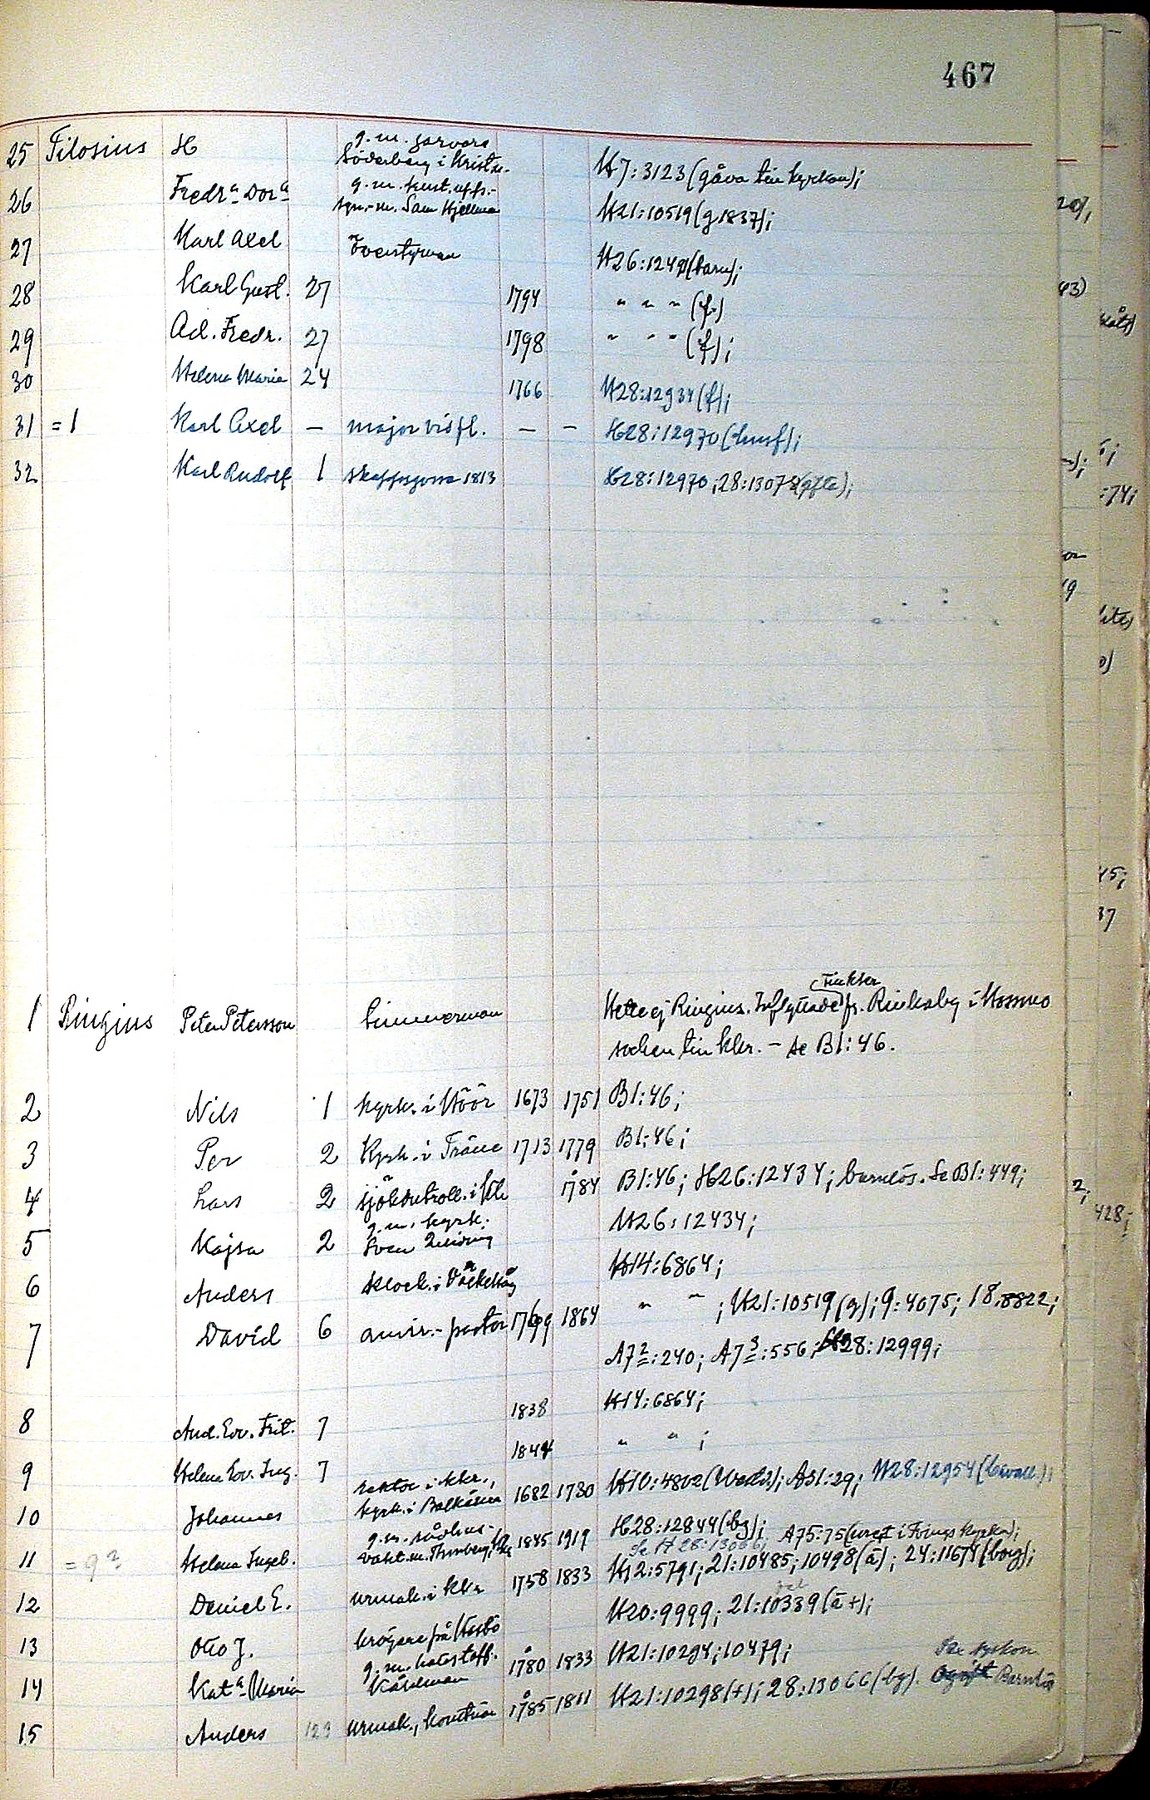 467
25 Filosius H g.m. garvare
Söderberg i Krist:a. H7:3123 (gåva till kyrkan);
26 Fredr:a Dor:a g.m. kust.upps.-
syn.-m. Sam Hjellman H21:10519 (g 1837);
27 Karl Axel överstyrman H26:1249 (barn);
28 Karl Gust. 27 1794 " " " (f.)
29 Ad. Fredr. 27 1798 " " " (f);
30 Helena Maria 24 1766 H28:12934 (f);
31 =1 Karl Axel – major vis fl. – – H28:12970 (husf);
32 Karl Rudolf 1 skeppsgosse 1813 H28:12970; 28:13078 (gifta);
1 Ringius Peter Petersson timmerman Hette ej Ringius. Inflyttade fr. Rinkaby i Hossmo
socken till Klr. – se B1:46.
2 Nils 1 kyrk. i Höör 1673 1751 B1:46;
3 Per 2 Kyrk. i Träne 1713 1779 B1:46;
4 Lars 2 sjökontroll. i Klr 1784 B1:46; H26:12434; barnlös. Se B1:449;
5 Kajsa 2 g.m. kyrk.
Sven H26:12434;
6 Anders klock. i H14:6864;
7 David 6 amir.-pastor 1799 1864 " " ; H21:10519 (g); 9:4075; 18:8822;
A7²:240; A7³:556; H28:12999;
8 And. Edv. Frit. 7 1838 H14:6864;
9 Helena Lov. Ing. 7 1844 " " ;
10 Johannes rektor i Klr.,
kyrk. i Balkåkra 1682 1730 H10:4802; A31:29; H28:12954
11 =9? Helena Ingeb. g.m. rådhus-
vakt.m. Thunberg, Klr 1845 1919 H28:12844 (bg); A75:75
Se H 28:13066;
12 Daniel E. urmak. i Klr 1758 1833 H12:5791; 21:10485; 10498 (ä); 24:11674 (borg);
13 Otto J. krögare på Hasbo H20:9999; 21:10339 (ä +);
14 Kat:a Maria g.m. hovstaff.
Kåhlman 1780 1833 H21:10294; 10479;
15 Anders 12? urmak., konstnär 1785 1811 H21:10298 (+); 28:13066 (bg). Barnlös